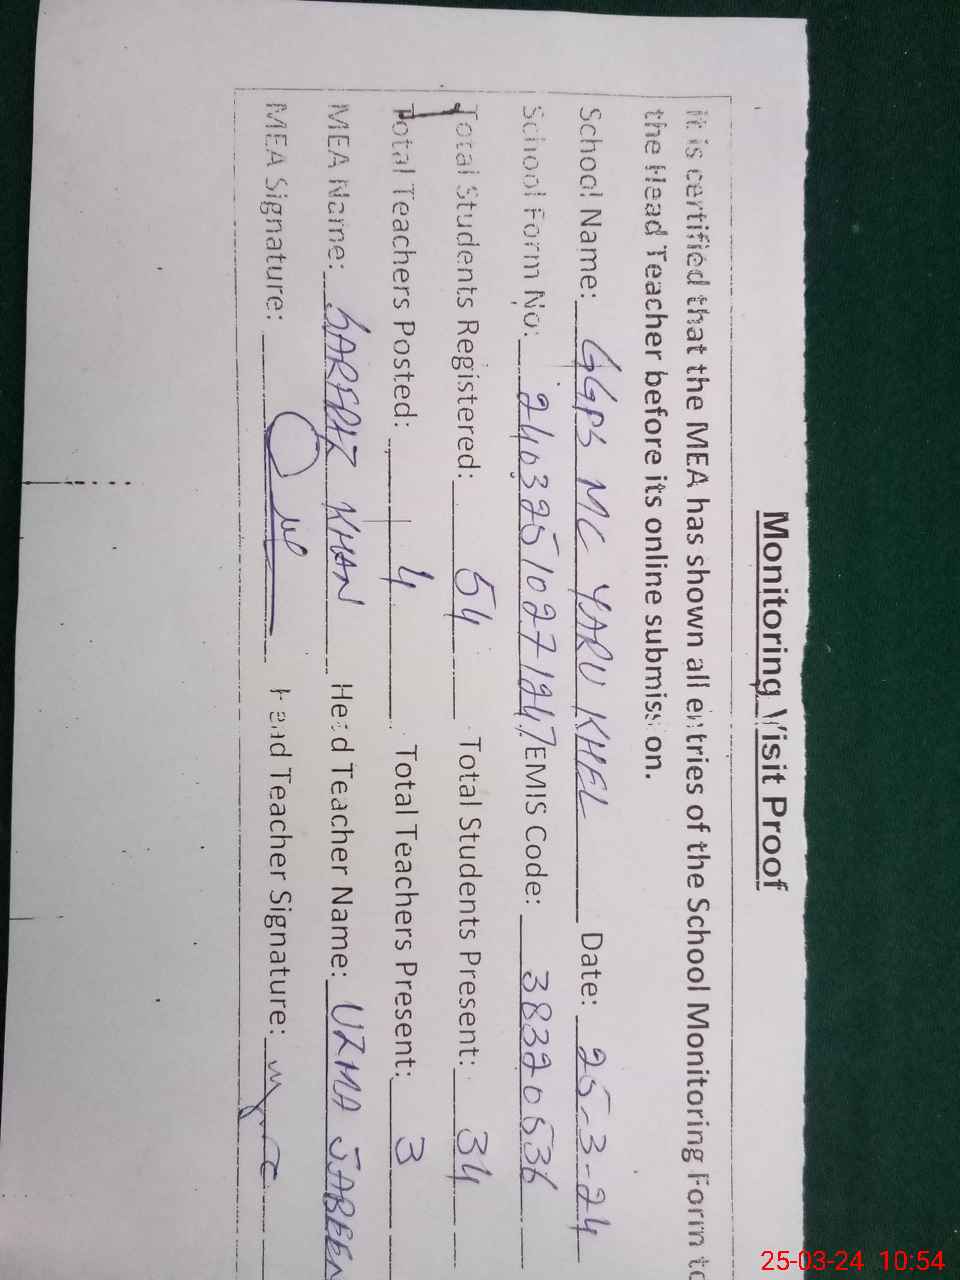 Monitoring Visit Proof
it is certified that the MEA has shown all entries of the School Monitoring Form to
the Head Teacher before its online submission.
School Name: GGPS MC YARU KHEL Date: 25-3-24
School Form No: 24032510271247 EMIS Code: 38320536
Total Students Registered: 54 Total Students Present: 34
Total Teachers Posted: 4 Total Teachers Present: 3
MEA Name: SARFRAZ KHAN Head Teacher Name: UZMA JABEEN
MEA Signature: Head Teacher Signature:
25-03-24 10:54